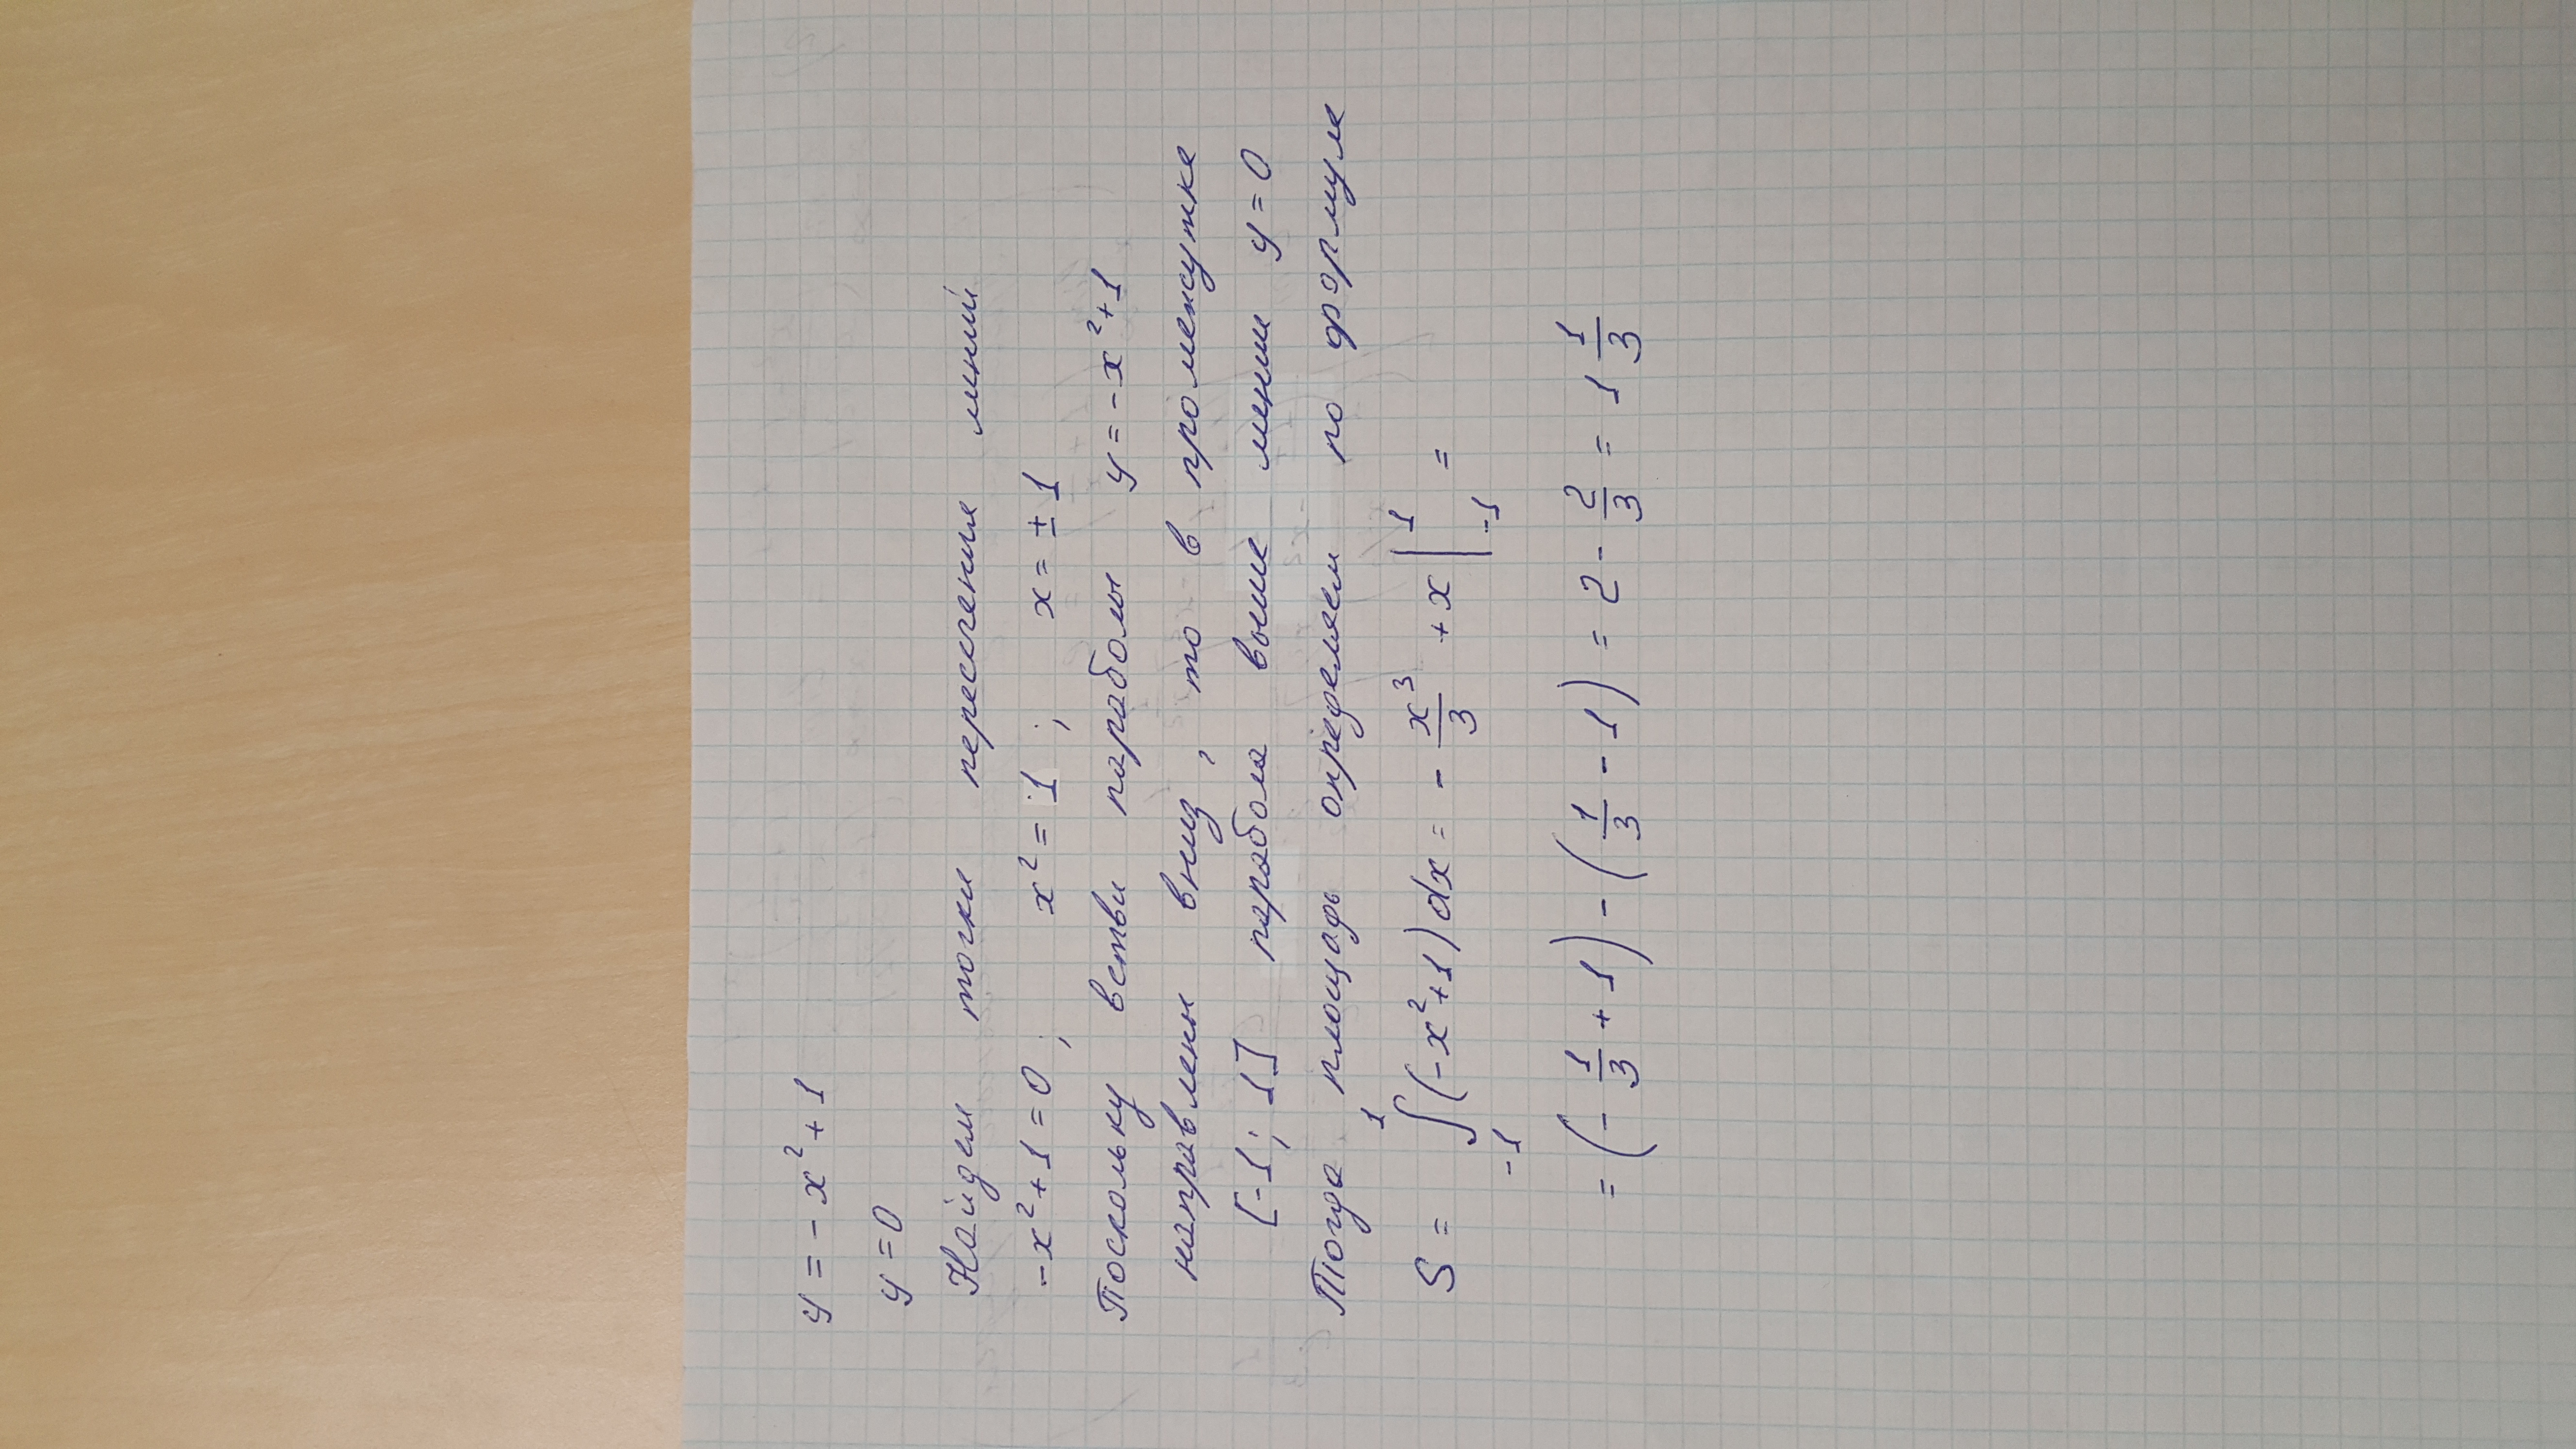 y = - x² + 1
y = 0
Найдем точки пересечения линий
-x² + 1 = 0 ; x² = 1 ; x = ± 1
Поскольку ветви параболы y = - x² + 1
направлены вниз, то в промежутке
[-1; 1] парабола выше линии y = 0
Тогда площадь определяем по формуле
S = ∫₋₁¹ (-x² + 1) dx = - x³/3 + x |₋₁¹ =
= (- 1/3 + 1) - (1/3 - 1) = 2 - 2/3 = 1 1/3